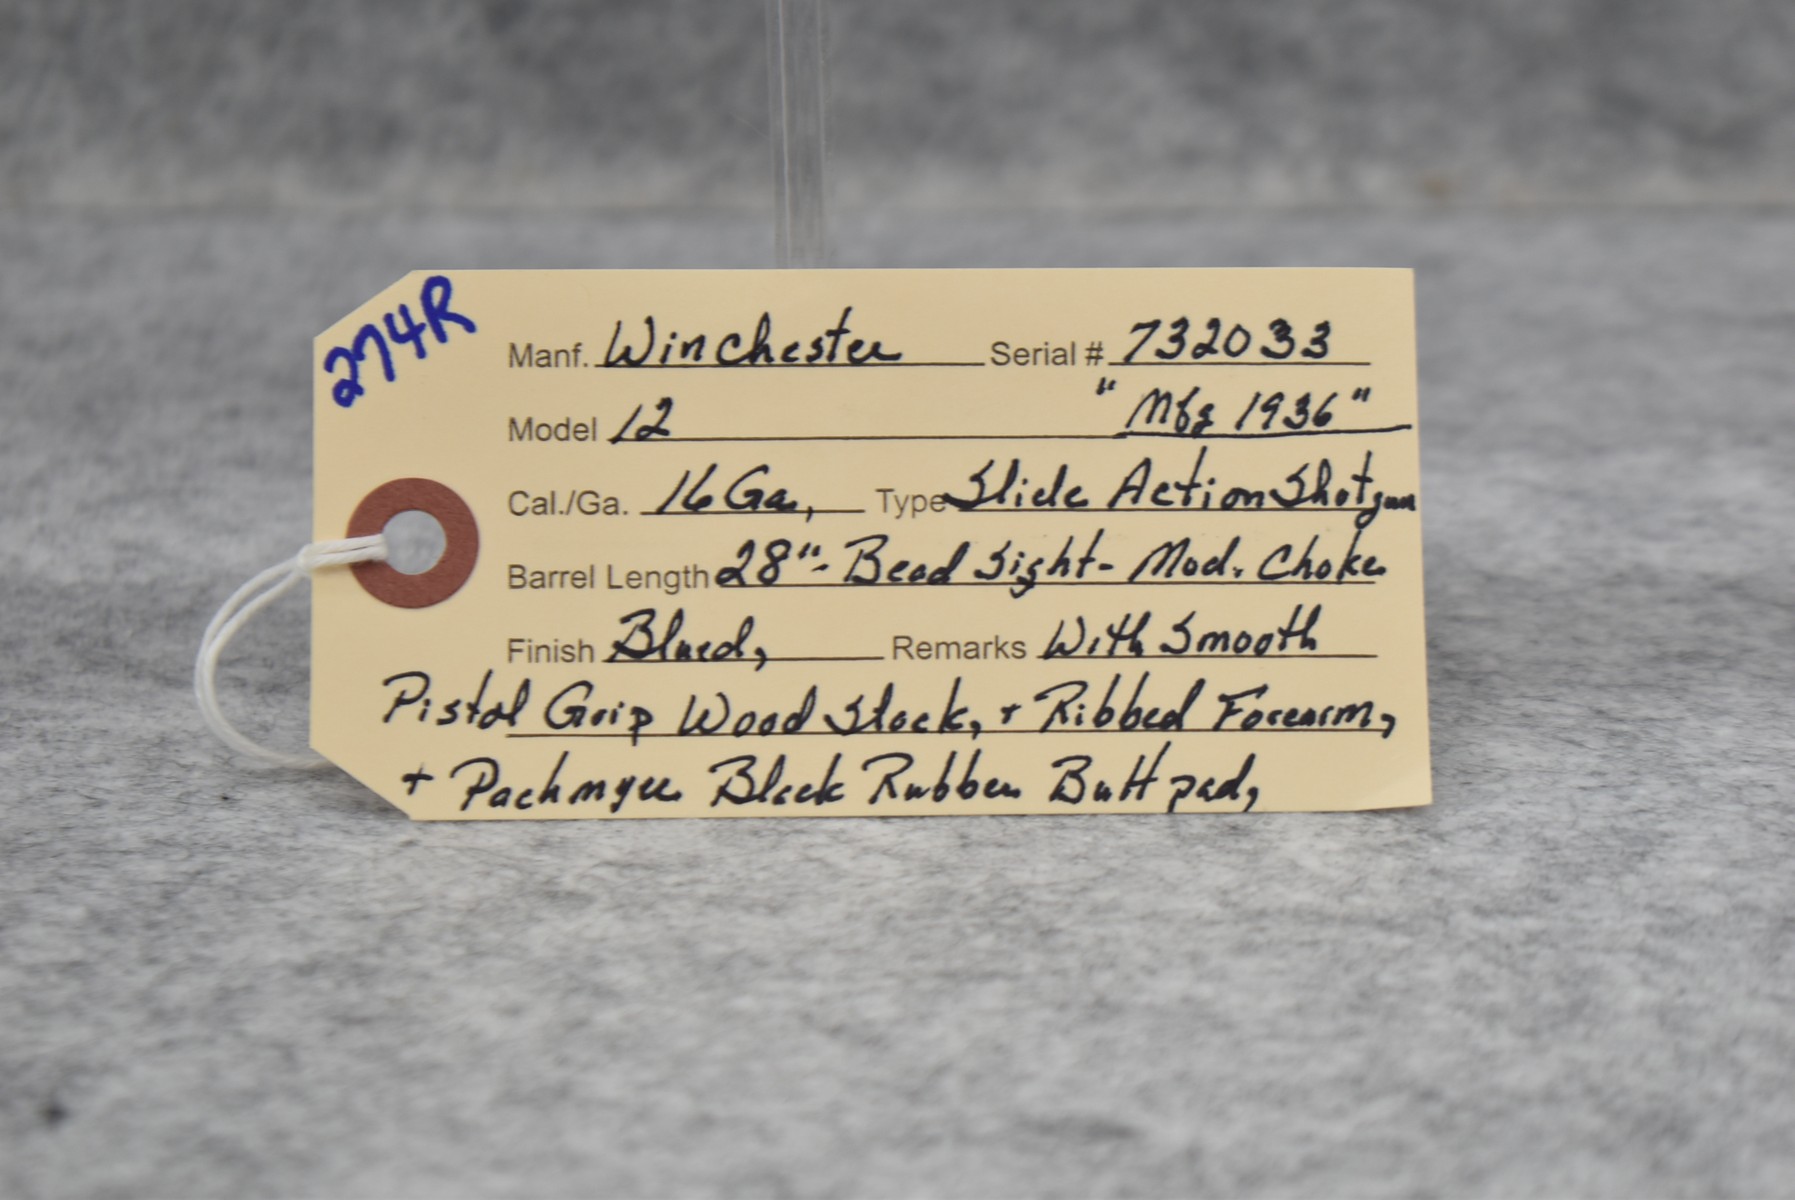 274R
Manf. Winchester Serial # 732033
Model 12 "Mfg 1936"
Cal./Ga. 16 Ga, Type Slide Action Shotgun
Barrel Length 28"- Bead Sight- Mod. Choke
Finish Blued, Remarks With Smooth
Pistol Grip Wood Stock, + Ribbed Forearm,
+ Pachmyer Black Rubber Butt pad,